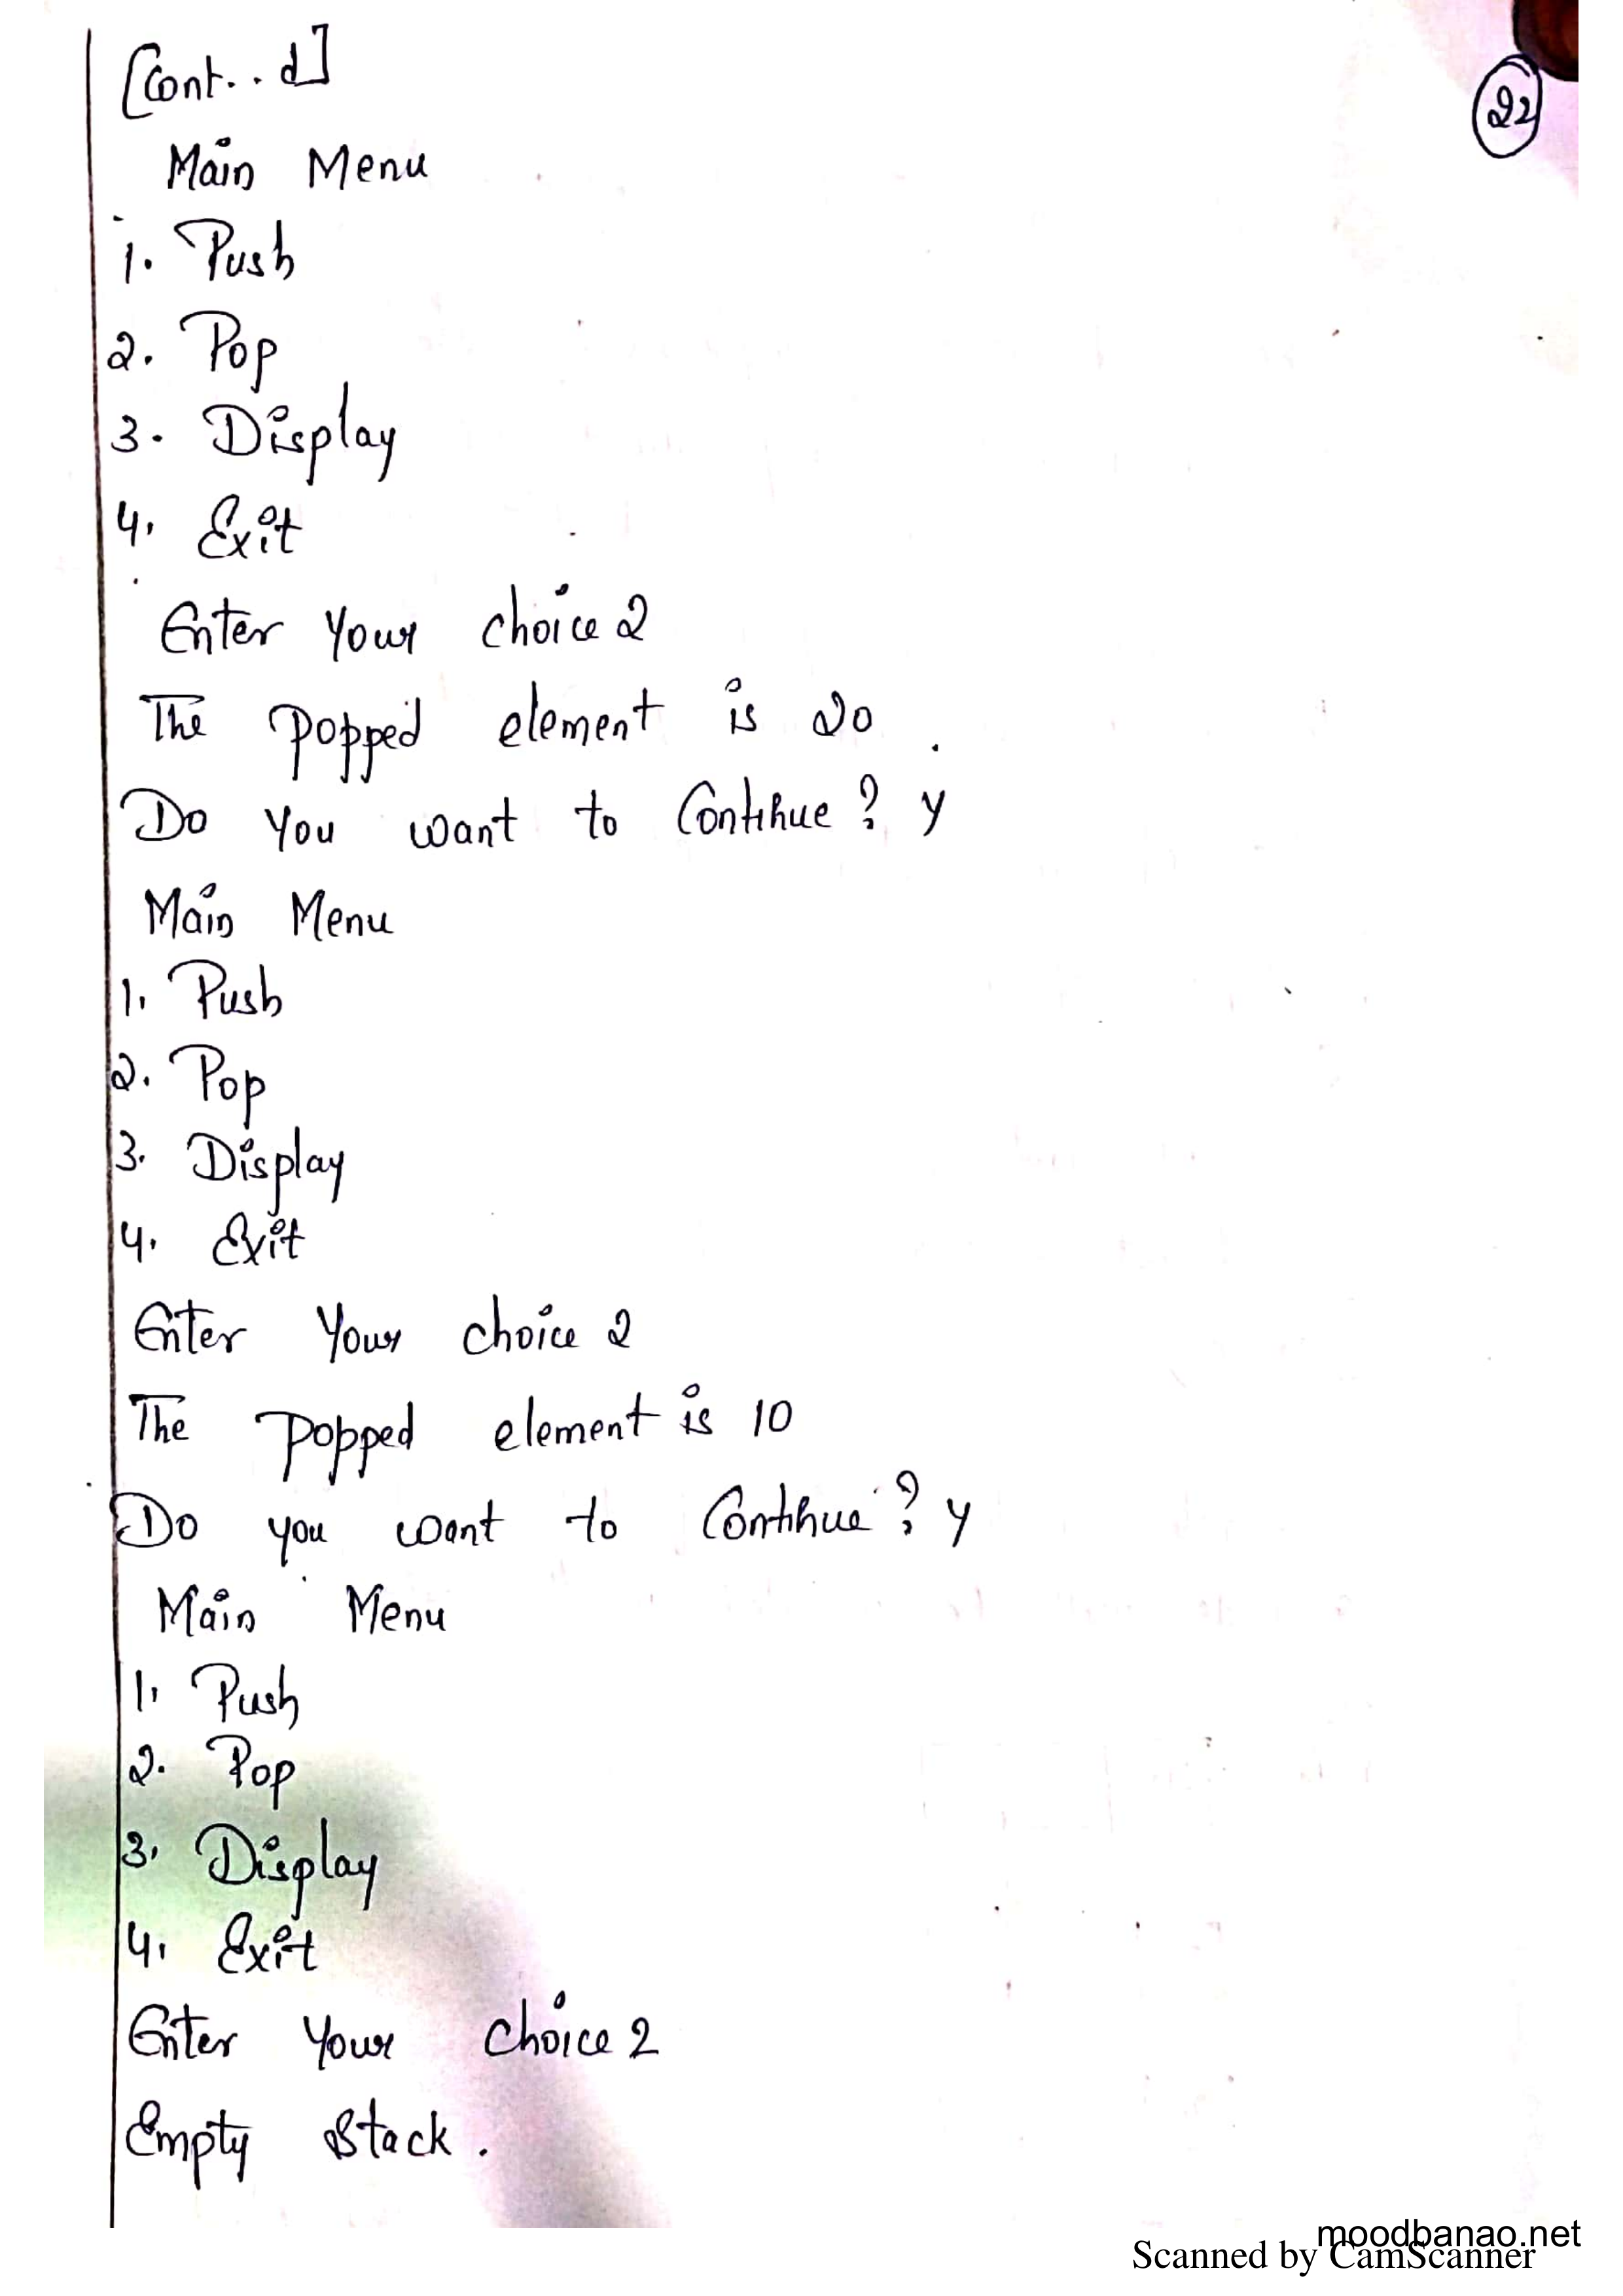 [Cont..d]
22
Main Menu
1. Push
2. Pop
3. Display
4. Exit
Enter Your choice 2
The Popped element is 20
Do You want to Continue ? y
Main Menu
1. Push
2. Pop
3. Display
4. Exit
Enter Your choice 2
The Popped element is 10
Do you want to Continue ? y
Main Menu
1. Push
2. Pop
3. Display
4. Exit
Enter Your choice 2
Empty Stack.
moodbanao.net
Scanned by CamScanner